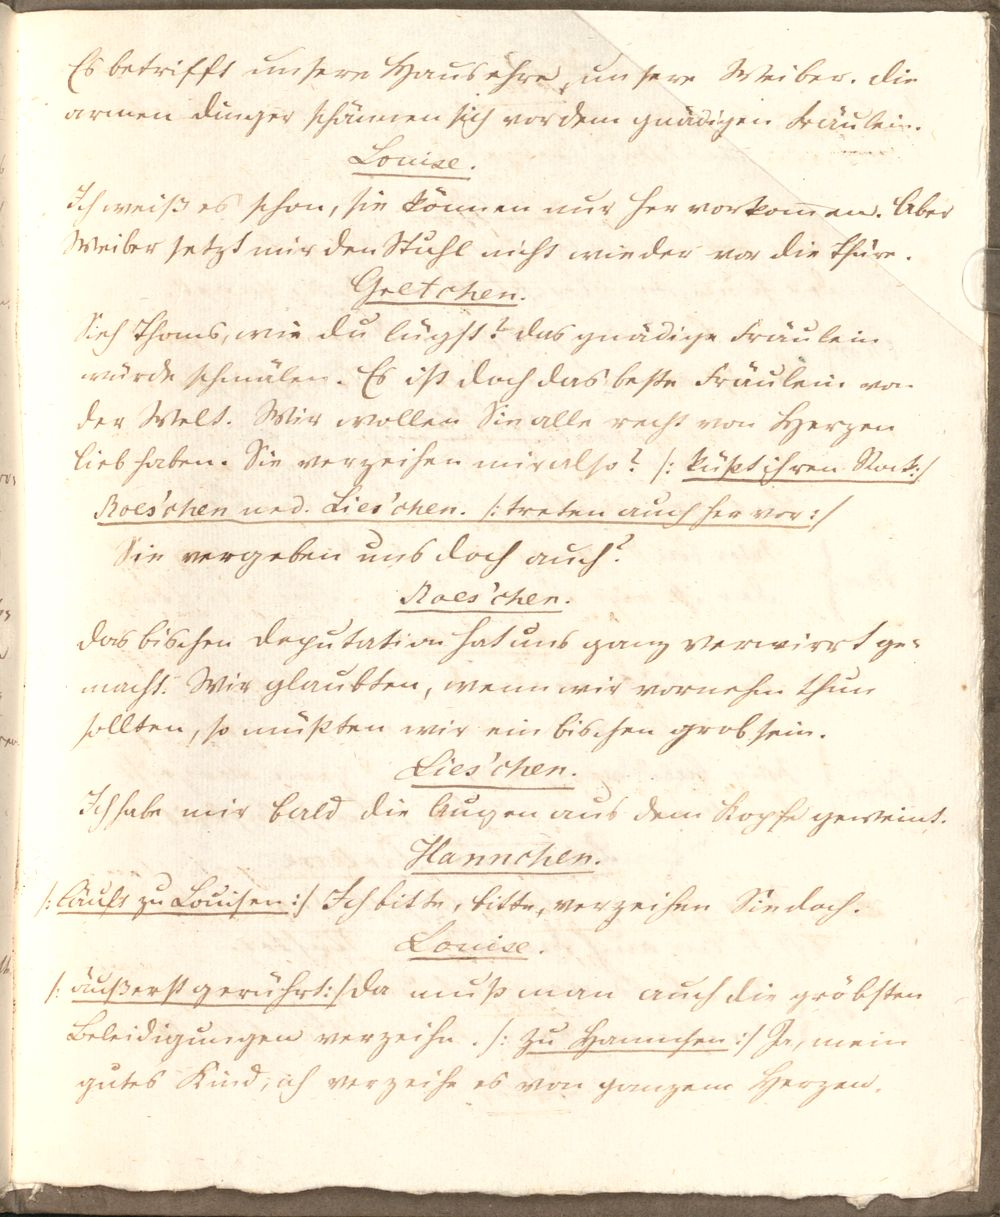 Es betrifft unsere Hausehre, unsere Weiber. Die
armen Dinger schämen sich vor dem gnädigen Fräulein.
Louise.
Ich weiß es schon, sie können nur hervorkommen. Aber
Weiber setzt mir den Stuhl nicht wieder vor die Thüre.
Gretchen.
Sieh Thoms, wie du lügst? das gnädige Fräulein
würde schmälen. Es ist doch das beste Fräulein von
der Welt. Wir wollen Sie alle recht von Herzen
lieb haben. Sie verzeihen mir also? /: küßt ihren Rock :/
Roes'chen und. Lies'chen. /: treten auch hervor :/
Sie vergeben uns doch auch?
Roes'chen.
Das bischen Deputation hat uns ganz verwirrt ge-
macht. Wir glaubten, wenn wir vornehm thun
sollten, so müßten wir ein bischen grob sein.
Lies'chen.
Ich habe mir bald die Augen aus dem Kopfe geweint.
Hannchen.
/: läuft zu Louisen :/ Ich bitte, bitte, verzeihen Sie doch.
Louise.
/: äußerst gerührt :/ Da muß man auch die gröbsten
Beleidigungen verzeihn. /: zu Hannchen :/ Ja, mein
gutes Kind, ich verzeihe es von ganzem Herzen.